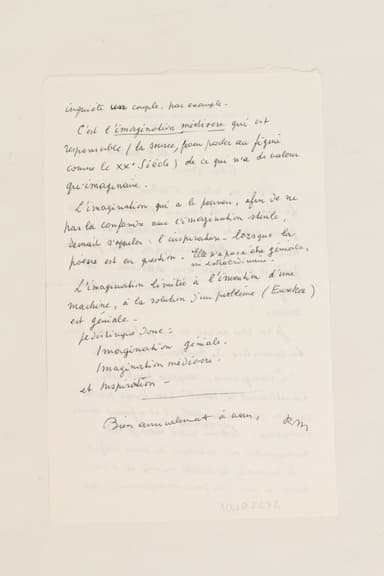 inquiète un couple, par exemple.
C'est l'imagination médiocre qui est
responsable (la source, pour parler au figuré
comme le XXe Siècle) de ce qui n'a de valeur
qu'imaginaire.
L'imagination qui a le pouvoir, afin de ne
pas la confondre avec l'imagination stérile,
devrait s'appeler : l'inspiration - lorsque la
poésie est en question. Elle n'a pas à être géniale,
ni extraordinaire.
L'imagination limitée à l'invention d'une
machine, à la solution d'un problème (Eurêka)
est géniale.
Je distingue donc :
Imagination géniale.
Imagination médiocre.
et Inspiration -
Bien à vous,
RM